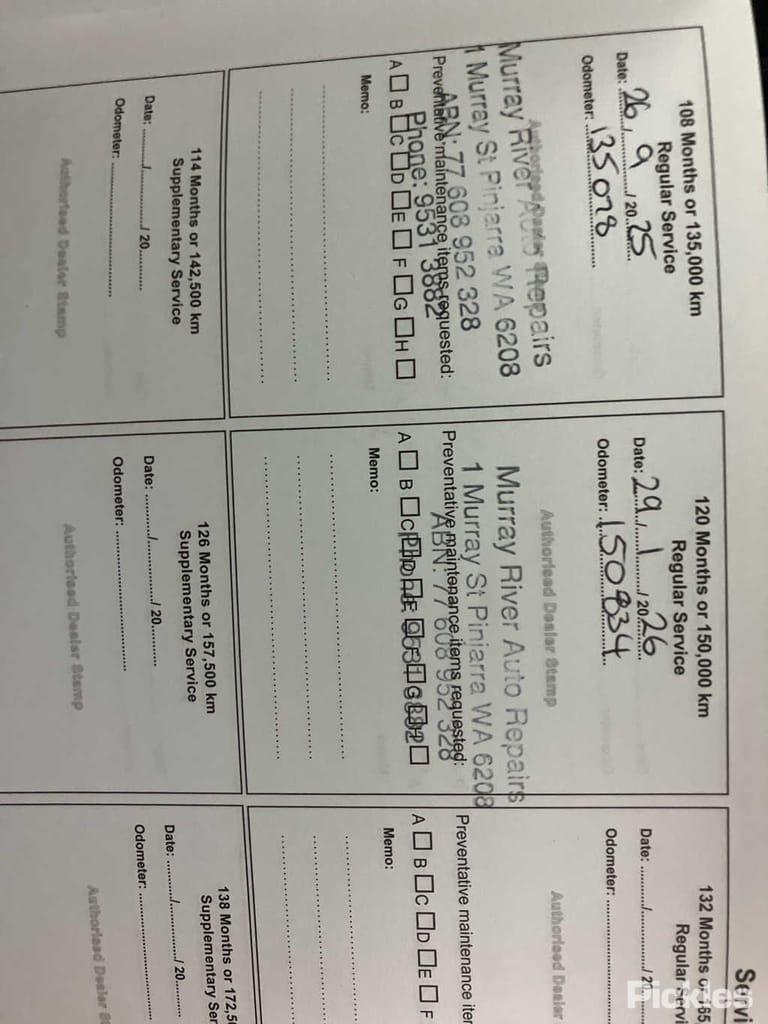 Servi
108 Months or 135,000 km
Regular Service
Date: 26/9/2025
Odometer: 135078
Authorised Dealer Stamp
Murray River Auto Repairs
1 Murray St Pinjarra WA 6208
ABN: 77 608 952 328
Phone: 9531 3882
Preventative maintenance items requested:
A B C D E F G H
Memo:
120 Months or 150,000 km
Regular Service
Date: 29/1/2026
Odometer: 150834
Authorised Dealer Stamp
Murray River Auto Repairs
1 Murray St Pinjarra WA 6208
ABN: 77 608 952 328
Phone: 9531 3882
Preventative maintenance items requested:
A B C D E F G H
Memo:
132 Months or 165
Regular Servi
Date: ........../........../ 20
Odometer: ..........
Authorised Dealer
Preventative maintenance iter
A B C D E F
Memo:
114 Months or 142,500 km
Supplementary Service
Date: ........../........../ 20..........
Odometer: ..........
Authorised Dealer Stamp
126 Months or 157,500 km
Supplementary Service
Date: ........../........../ 20..........
Odometer: ..........
Authorised Dealer Stamp
138 Months or 172,5
Supplementary Ser
Date: ........../........../ 20..........
Odometer: ..........
Authorised Dealer S
Pickles